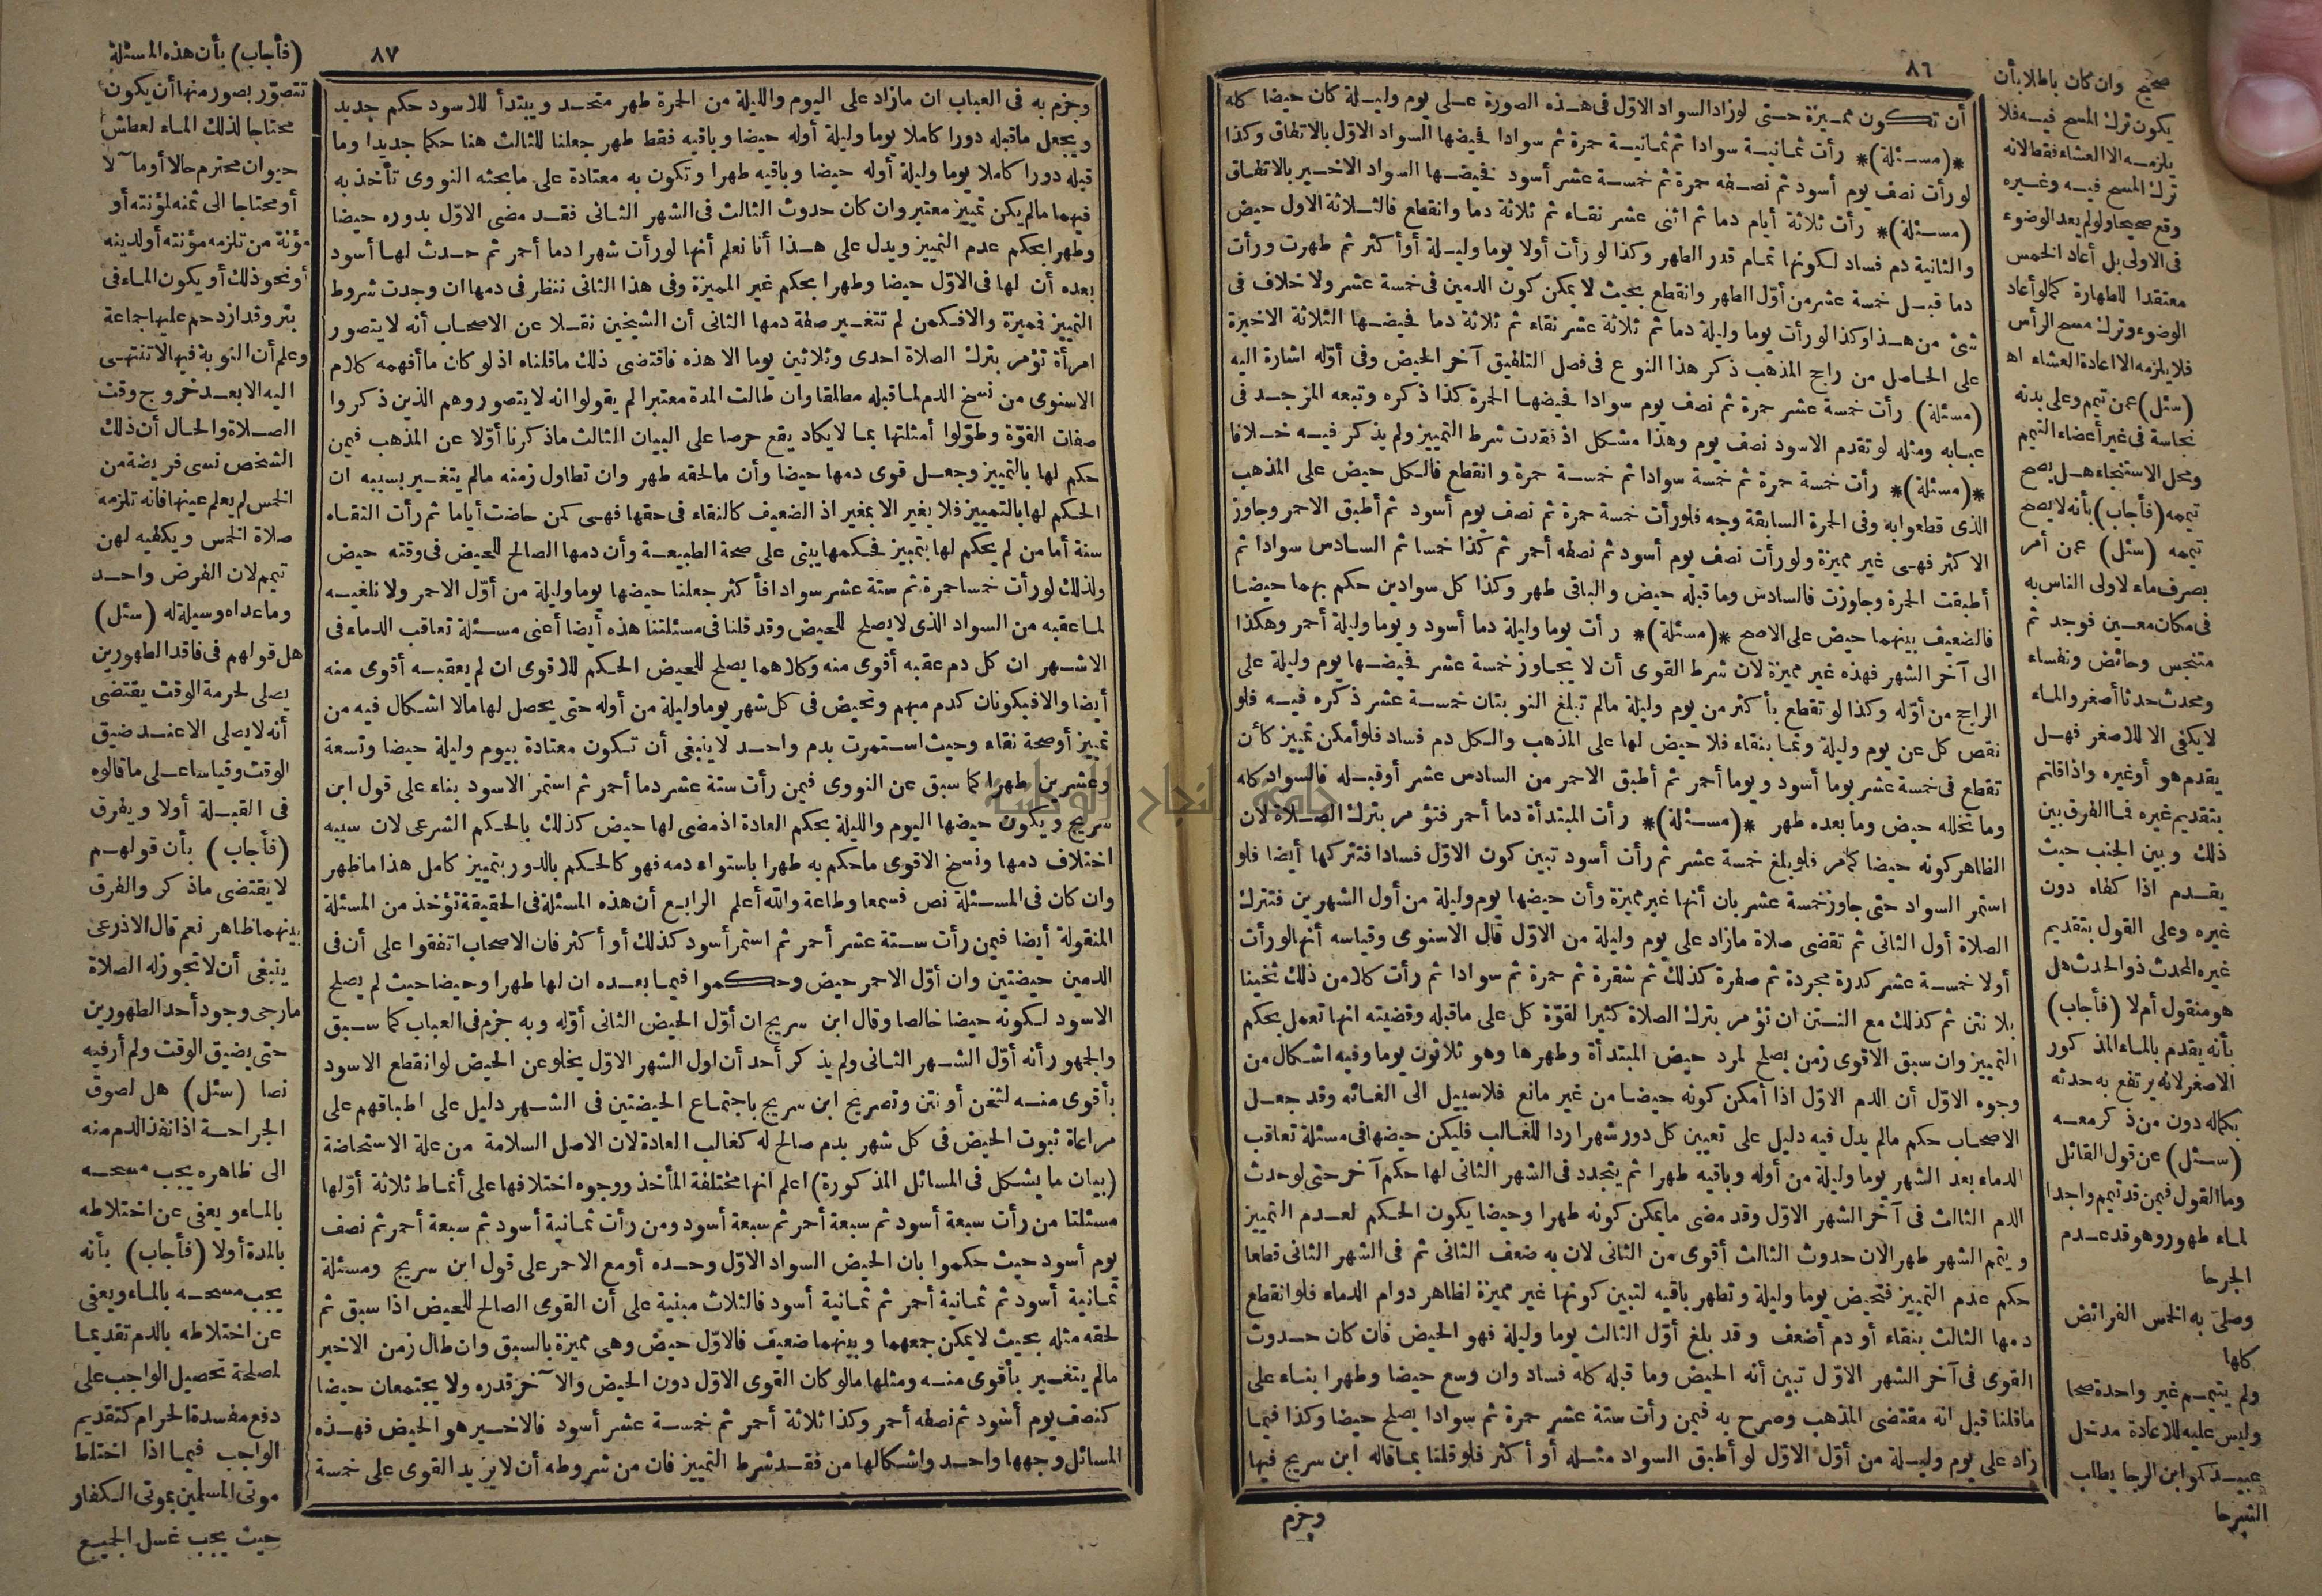 ٨٦
أن تكون مميزة حتى لو زاد السواد الاوّل فى هذه الصورة على يوم وليلة كان حيضا كله
*(مسئلة)* رأت ثمانية سوادا ثم ثمانية حمرة ثم سوادا فحيضها السواد الاوّل بالاتفاق وكذا
لو رأت نصف يوم أسود ثم نصفه حمرة ثم خمسة عشر أسود فحيضها السواد الاخير بالاتفاق
(مسئلة)* رأت ثلاثة أيام دما ثم اثنى عشر نقاء ثم ثلاثة دما وانقطع فالثلاثة الاول حيض
والثانية دم فساد لكونها تمام قدر الطهر وكذا لو رأت أولا يوما وليلة أو أكثر ثم طهرت ورأت
دما قبل خمسة عشر من أوّل الطهر وانقطع بحيث لا يمكن كون الدمين فى خمسة عشر ولا خلاف فى
شئ من هذا وكذا لو رأت يوما وليلة دما ثم ثلاثة عشر نقاء ثم ثلاثة دما فحيضها الثلاثة الاخيرة
على الحاصل من راجح المذهب ذكر هذا النوع فى فصل التلفيق آخر الحيض وفى أوّله اشارة اليه
(مسئلة) رأت خمسة عشر حمرة ثم نصف يوم سوادا فحيضها الحمرة كذا ذكره وتبعه المزجد فى
عبابه ومثله لو تقدم الاسود نصف يوم وهذا مشكل اذ فقدت شرط التمييز ولم يذكر فيه خلافا
*(مسئلة)* رأت خمسة حمرة ثم خمسة سوادا ثم خمسة حمرة وانقطع فالكل حيض على المذهب
الذى قطعوا به وفى الحمرة السابقة وجه فلو رأت خمسة حمرة ثم نصف يوم أسود ثم أطبق الاحمر وجاوز
الاكثر فهى غير مميزة ولو رأت نصف يوم أسود ثم نصفه أحمر ثم كذا خمسا ثم السادس سوادا ثم
أطبقت الحمرة وجاوزت فالسادس وما قبله حيض والباقى طهر وكذا كل سوادين حكم بهما حيضا
فالضعيف بينهما حيض على الاصح *(مسئلة)* رأت يوما وليلة دما أسود ويوما وليلة أحمر وهكذا
الى آخر الشهر فهذه غير مميزة لان شرط القوى أن لا يجاوز خمسة عشر فحيضها يوم وليلة على
الراجح من أوّله وكذا لو تقطع بأكثر من يوم وليلة مالم تبلغ النوبتان خمسة عشر ذكره فيه فلو
نقص كل عن يوم وليلة وتما بنقاء فلا حيض لها على المذهب والكل دم فساد فلو أمكن تمييز كأن
تقطع فى خمسة عشر يوما أسود ويوما أحمر ثم أطبق الاحمر من السادس عشر أو قبله فالسواد كله
وما تخلله حيض وما بعده طهر *(مسئلة)* رأت المبتدأة دما أحمر فتؤمر بترك الصلاة لان
الظاهر كونه حيضا كما مر فلو بلغ خمسة عشر ثم رأت أسود تبين كون الاوّل فسادا فتتركها أيضا فلو
استمر السواد حتى جاوز خمسة عشر بان أنها غير مميزة وأن حيضها يوم وليلة من أول الشهرين فتترك
الصلاة أول الثانى ثم تقضى صلاة مازاد على يوم وليلة من الاوّل قال الاسنوى وقياسه أنها لو رأت
أولا خمسة عشر كدرة مجردة ثم صفرة كذلك ثم شقرة ثم حمرة ثم سوادا ثم رأت كلا من ذلك ثخينا
بلا نتن ثم كذلك مع النتن ان تؤمر بترك الصلاة كثيرا لقوّة كل على ماقبله وقضيته انها تعمل بحكم
التمييز وان سبق الاقوى زمن يصلح لمرد حيض المبتدأة وطهرها وهو ثلاثون يوما وفيه اشكال من
وجوه الاوّل أن الدم الاوّل اذا أمكن كونه حيضا من غير مانع فلا سبيل الى الغائه وقد جعل
الاصحاب حكم مالم يدل فيه دليل على تعيين كل دور شهرا ردا للغالب فليكن حيضها فى مسئلة تعاقب
الدماء بعد الشهر يوما وليلة من أوله وباقيه طهرا ثم يتجدد فى الشهر الثانى لها حكم آخر حتى لو حدث
الدم الثالث فى آخر الشهر الاوّل وقد مضى مايمكن كونه طهرا وحيضا يكون الحكم لعدم التمييز
ويتم الشهر طهر الان حدوث الثالث أقوى من الثانى لان به ضعف الثانى ثم فى الشهر الثانى قطعا
حكم عدم التمييز فتحيض يوما وليلة وتطهر باقيه لتبين كونها غير مميزة لظاهر دوام الدماء فلو انقطع
دمها الثالث بنقاء أو دم أضعف وقد بلغ أوّل الثالث يوما وليلة فهو الحيض فان كان حدوث
القوى فى آخر الشهر الاوّل تبين أنه الحيض وما قبله كله فساد وان وسع حيضا وطهرا بناء على
ماقلنا قبل انه مقتضى المذهب وصرح به فيمن رأت ستة عشر حمرة ثم سوادا يصلح حيضا وكذا فيما
زاد على يوم وليلة من أوّل الاوّل لو أطبق السواد مثله أو أكثر فلو قلنا بما قاله ابن سريج فيها
وجزم
صحيح وان كان باطلا بأن
يكون ترك المسح فيه فلا
يلزمه الا العشاء فقط لانه
ترك المسح فيه وغيره
وقع صحيحا ولو لم يعد الوضوء
فى الاولى بل أعاد الخمس
معتقدا للطهارة كما لو أعاد
الوضوء وترك مسح الرأس
فلا يلزمه الا اعادة العشاء اه
(سئل) عمن تيمم وعلى بدنه
نجاسة فى غير أعضاء التيمم
ومحل الاستنجاء هل يصح
تيممه (فأجاب) بأنه لا يصح
تيممه (سئل) عمن أمر
بصرف ماء لاولى الناس به
فى مكان معين فوجد ثم
متنجس وحائض ونفساء
ومحدث حدثا أصغر والماء
لا يكفى الا للاصغر فهل
يقدم هو أو غيره واذا قلتم
بتقديم غيره فما الفرق بين
ذلك وبين الجنب حيث
يقدم اذا كفاه دون
غيره وعلى القول بتقديم
غيره المحدث ذو الحدث هل
هو منقول أم لا (فأجاب)
بأنه يقدم بالماء المذكور
الاصغر لانه يرتفع به حدثه
بكماله دون من ذكر معه
(سئل) عن قول القائل
وما القول فيمن قد تيمم واجدا
لماء طهور وهو قد عدم
الجرحا
وصلى به الخمس الفرائض
كلها
ولم يتيمم غير واحدة صحا
وليس عليه للاعادة مدخل
عبيدكمو ابن الرجا يطلب
الشرحا
٨٧
وجزم به فى العباب ان مازاد على اليوم والليلة من الحمرة طهر متحد ويبتدأ للاسود حكم جديد
ويجعل ماقبله دورا كاملا يوما وليلة أوله حيضا وباقيه فقط طهر جعلنا للثالث هنا حكما جديدا وما
قبله دورا كاملا يوما وليلة أوله حيضا وباقيه طهرا وتكون به معتادة على مابحثه النووى تأخذ به
فيهما مالم يكن تمييز معتبر وان كان حدوث الثالث فى الشهر الثانى فقد مضى الاوّل بدوره حيضا
وطهرا بحكم عدم التمييز ويدل على هذا أنا نعلم أنها لو رأت شهرا دما أحمر ثم حدث لها أسود
بعده أن لها فى الاوّل حيضا وطهرا بحكم غير المميزة وفى هذا الثانى ننظر فى دمها ان وجدت شروط
التمييز فميزة والا فكمن لم تتغير صفة دمها الثانى أن الشيخين نقلا عن الاصحاب أنه لا يتصور
امرأة تؤمر بترك الصلاة احدى وثلاثين يوما الا هذه فاقتضى ذلك ماقلناه اذ لو كان ما أفهمه كلام
الاسنوى من نسخ الدم لما قبله مطلقا وان طالت المدة معتبرا لم يقولوا انه لا يتصور وهم الذين ذكروا
صفات القوّة وطوّلوا أمثلتها بما لا يكاد يقع حرصا على البيان الثالث ماذكرنا أوّلا عن المذهب فيمن
حكم لها بالتمييز وجعل قوى دمها حيضا وأن مالحقه طهر وان تطاول زمنه مالم يتغير بسببه ان
الحكم لها بالتمييز فلا يغير الا بمغير اذ الضعيف كالنقاء فى حقها فهى كمن حاضت أياما ثم رأت النقاء
سنة أما من لم يحكم لها بتمييز فحكمها يبنى على صحة الطبيعة وأن دمها الصالح للحيض فى وقته حيض
ولذلك لو رأت خمسا حمرة ثم ستة عشر سوادا فأكثر جعلنا حيضها يوما وليلة من أوّل الاحمر ولا نلغيه
لما عقبه من السواد الذى لا يصلح للحيض وقد قلنا فى مسئلتنا هذه أيضا أعنى مسئلة تعاقب الدماء فى
الاشهر ان كل دم عقبه أقوى منه وكلاهما يصلح للحيض الحكم للاقوى ان لم يعقبه أقوى منه
أيضا والا فيكونان كدم مبهم وتحيض فى كل شهر يوما وليلة من أوله حتى يحصل لها مالا اشكال فيه من
تمييز أو صحة نقاء وحيث استمرت بدم واحد لا ينبغى أن تكون معتادة بيوم وليلة حيضا وتسعة
وعشرين طهرا كما سبق عن النووى فيمن رأت ستة عشر دما أحمر ثم استمر الاسود بناء على قول ابن
سريج ويكون حيضها اليوم والليلة بحكم العادة اذ مضى لها حيض كذلك بالحكم الشرعى لان سببه
اختلاف دمها ونسخ الاقوى ماحكم به طهرا باستواء دمه فهو كالحكم بالدور بتمييز كامل هذا ماظهر
وان كان فى المسئلة نص فسمعا وطاعة والله أعلم الرابع أن هذه المسئلة فى الحقيقة تؤخذ من المسئلة
المنقولة أيضا فيمن رأت ستة عشر أحمر ثم استمر أسود كذلك أو أكثر فان الاصحاب اتفقوا على أن فى
الدمين حيضتين وان أوّل الاحمر حيض وحكموا فيما بعده ان لها طهرا وحيضا حيث لم يصلح
الاسود لكونه حيضا خالصا وقال ابن سريج ان أوّل الحيض الثانى أوّله وبه جزم فى العباب كما سبق
والجمهور أنه أوّل الشهر الثانى ولم يذكر أحد أن اول الشهر الاوّل يخلو عن الحيض لو انقطع الاسود
بأقوى منه لثخن أو نتن وتصريح ابن سريج باجتماع الحيضتين فى الشهر دليل على اطباقهم على
مراعاة ثبوت الحيض فى كل شهر بدم صالح له كغالب العادة لان الاصل السلامة من علة الاستحاضة
(بيان مايشكل فى المسائل المذكورة) اعلم انها مختلفة المأخذ ووجوه اختلافها على أنماط ثلاثة أوّلها
مسئلتا من رأت سبعة أسود ثم سبعة أحمر ثم سبعة أسود ومن رأت ثمانية أسود ثم سبعة أحمر ثم نصف
يوم أسود حيث حكموا بان الحيض السواد الاوّل وحده أو مع الاحمر على قول ابن سريج ومسئلة
ثمانية أسود ثم ثمانية أحمر ثم ثمانية أسود فالثلاث مبنية على أن القوى الصالح للحيض اذا سبق ثم
لحقه مثله بحيث لا يمكن جمعهما وبينهما ضعيف فالاوّل حيض وهى مميزة بالسبق وان طال زمن الاخير
مالم يتغير بأقوى منه ومثلها مالو كان القوى الاوّل دون الحيض والآخر قدره ولا يجتمعان حيضا
كنصف يوم أسود ثم نصفه أحمر وكذا ثلاثة أحمر ثم خمسة عشر أسود فالاخير هو الحيض فهذه
المسائل وجهها واحد واشكالها من فقد شرط التمييز فان من شروطه أن لا يزيد القوى على خمسة
(فأجاب) بأن هذه المسئلة
تتصوّر بصور منها أن يكون
محتاجا لذلك الماء لعطش
حيوان محترم حالا أو مآلا
أو محتاجا الى ثمنه لمؤنته أو
مؤنة من تلزمه مؤنته أو لدينه
أو نحو ذلك أو يكون الماء فى
بئر وقد ازدحم عليها جماعة
وعلم أن النوبة فيها لا تنتهى
اليه الا بعد خروج وقت
الصلاة والحال أن ذلك
الشخص نسى فريضة من
الخمس لم يعلم عينها فانه تلزمه
صلاة الخمس ويكفيه لهن
تيمم لان الفرض واحد
وما عداه وسيلة له (سئل)
هل قولهم فى فاقد الطهورين
يصلى لحرمة الوقت يقتضى
أنه لا يصلى الا عند ضيق
الوقت وقياسا على ما قالوه
فى القبلة أو لا ويفرق
(فأجاب) بأن قولهم
لا يقتضى ماذكر والفرق
بينهما ظاهر نعم قال الاذرعى
ينبغى أن لا تجوز له الصلاة
مارجى وجود أحد الطهورين
حتى يضيق الوقت ولم أر فيه
نصا (سئل) هل لصوق
الجراحة اذا نفذ الدم منه
الى ظاهره يجب مسحه
بالماء ويعفى عن اختلاطه
بالمدة أو لا (فأجاب) بأنه
يجب مسحه بالماء ويعفى
عن اختلاطه بالدم تقديما
لمصلحة تحصيل الواجب على
دفع مفسدة الحرام كتقديم
الواجب فيما اذا اختلط
موتى المسلمين بموتى الكفار
حيث يجب غسل الجميع